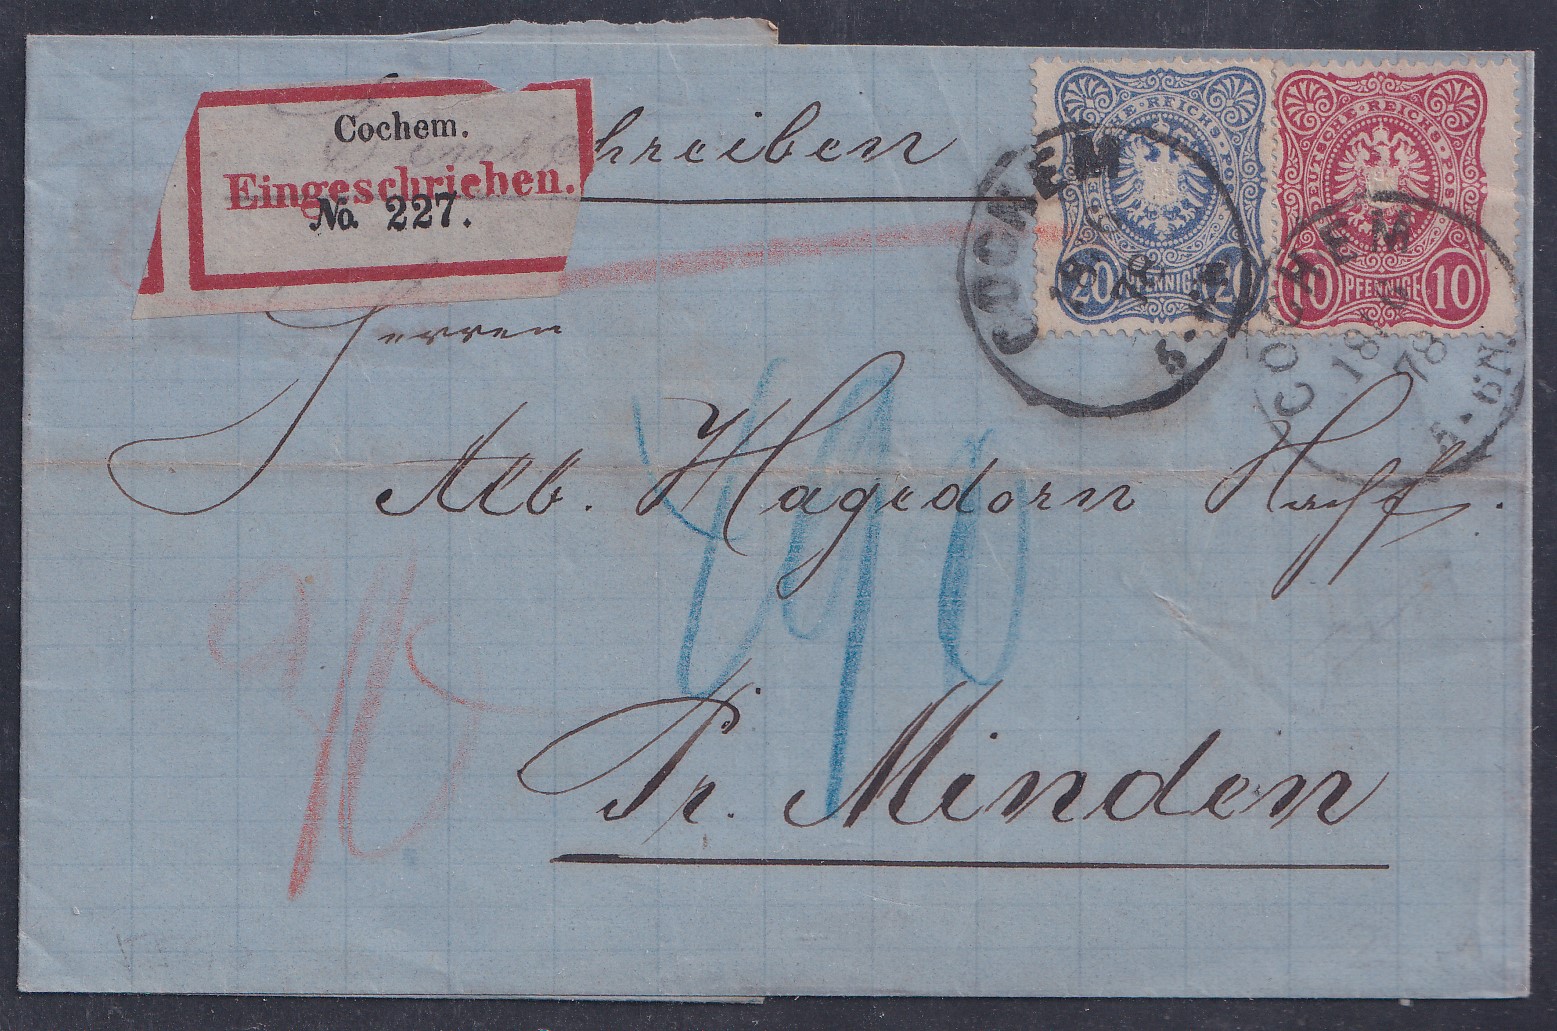 Cochem.
Eingeschrieben.
No. 227.
Einschreiben
DEUTSCHE REICHS-POST
20 PFENNIGE 20
DEUTSCHE REICHS-POST
10 PFENNIGE 10
COCHEM
18
78
5-6N.
COCHEM
18
78
5-6N.
Herren
Alb. Hagedorn Nachf.
Pr. Minden